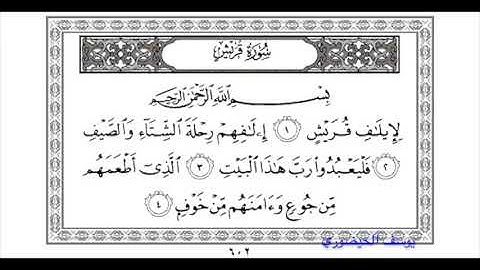 سُورَةُ قُرَيْشٍ
بِسْمِ اللَّهِ الرَّحْمَٰنِ الرَّحِيمِ
لِإِيلَٰفِ قُرَيْشٍ ١ إِۦلَٰفِهِمْ رِحْلَةَ الشِّتَآءِ وَالصَّيْفِ
٢ فَلْيَعْبُدُوا۟ رَبَّ هَٰذَا الْبَيْتِ ٣ الَّذِىٓ أَطْعَمَهُم
مِّن جُوعٍ وَءَامَنَهُم مِّنْ خَوْفٍۭ ٤
يوسف الخيضوري
٦٠٢